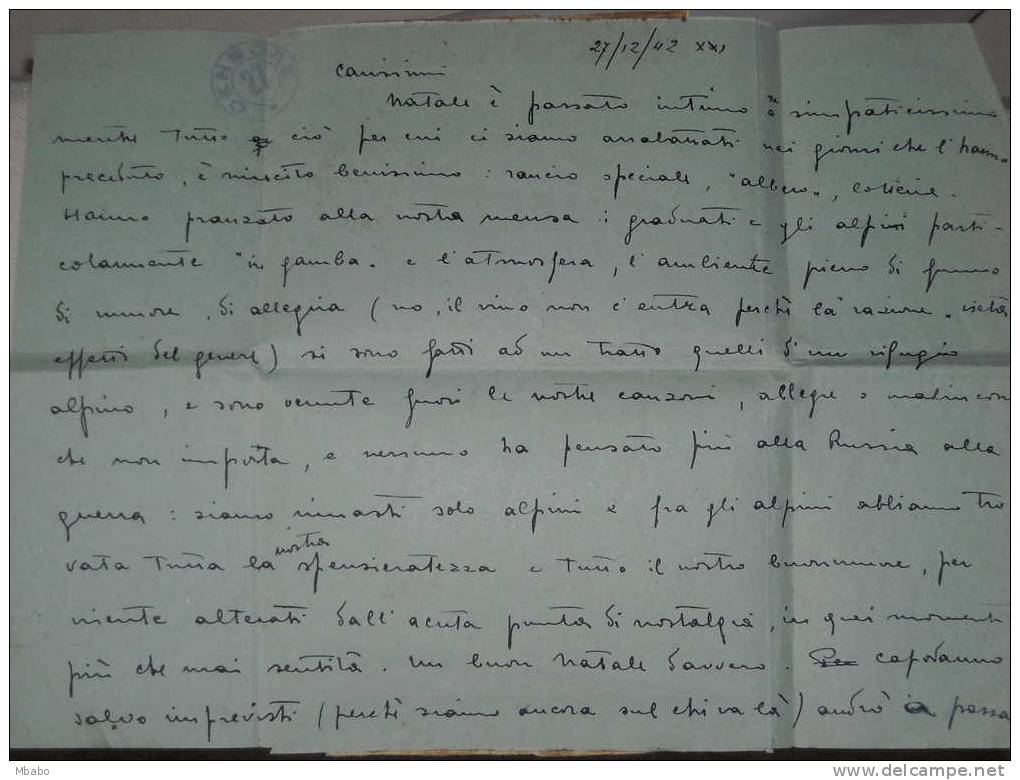 27/12/42 XXI
CENSURA 21
Carissimi
Natale è passato intimo e simpaticissimo
mentre tutto ciò per cui ci siamo arrabattati nei giorni che l'hanno
preceduto, è riuscito benissimo: rancio speciale, "albero",
Hanno pranzato alla nostra mensa i graduati e gli alpini parti-
colarmente "in gamba" e l'atmosfera, l'ambiente pieno di fumo
di rumore, di allegria (no, il vino non c'entra perchè la razione vieta
effetti del genere) si sono fatti ad un tratto quelli d'un rifugio
alpino, e sono venute fuori le nostre canzoni, allegre o malincon
che non importa, e nessuno ha pensato più alla Russia alla
guerra: siamo rimasti solo alpini e fra gli alpini abbiamo tro
vata tutta la nostra spensieratezza e tutto il nostro buonumore, per
niente alterati dall'acuta punta di nostalgia, in quei momenti
più che mai sentita. Un buon Natale davvero. Capodanno
salvo imprevisti (perchè siamo ancora sul chi va là) andrò a passa
Mbabo
delcampe.net